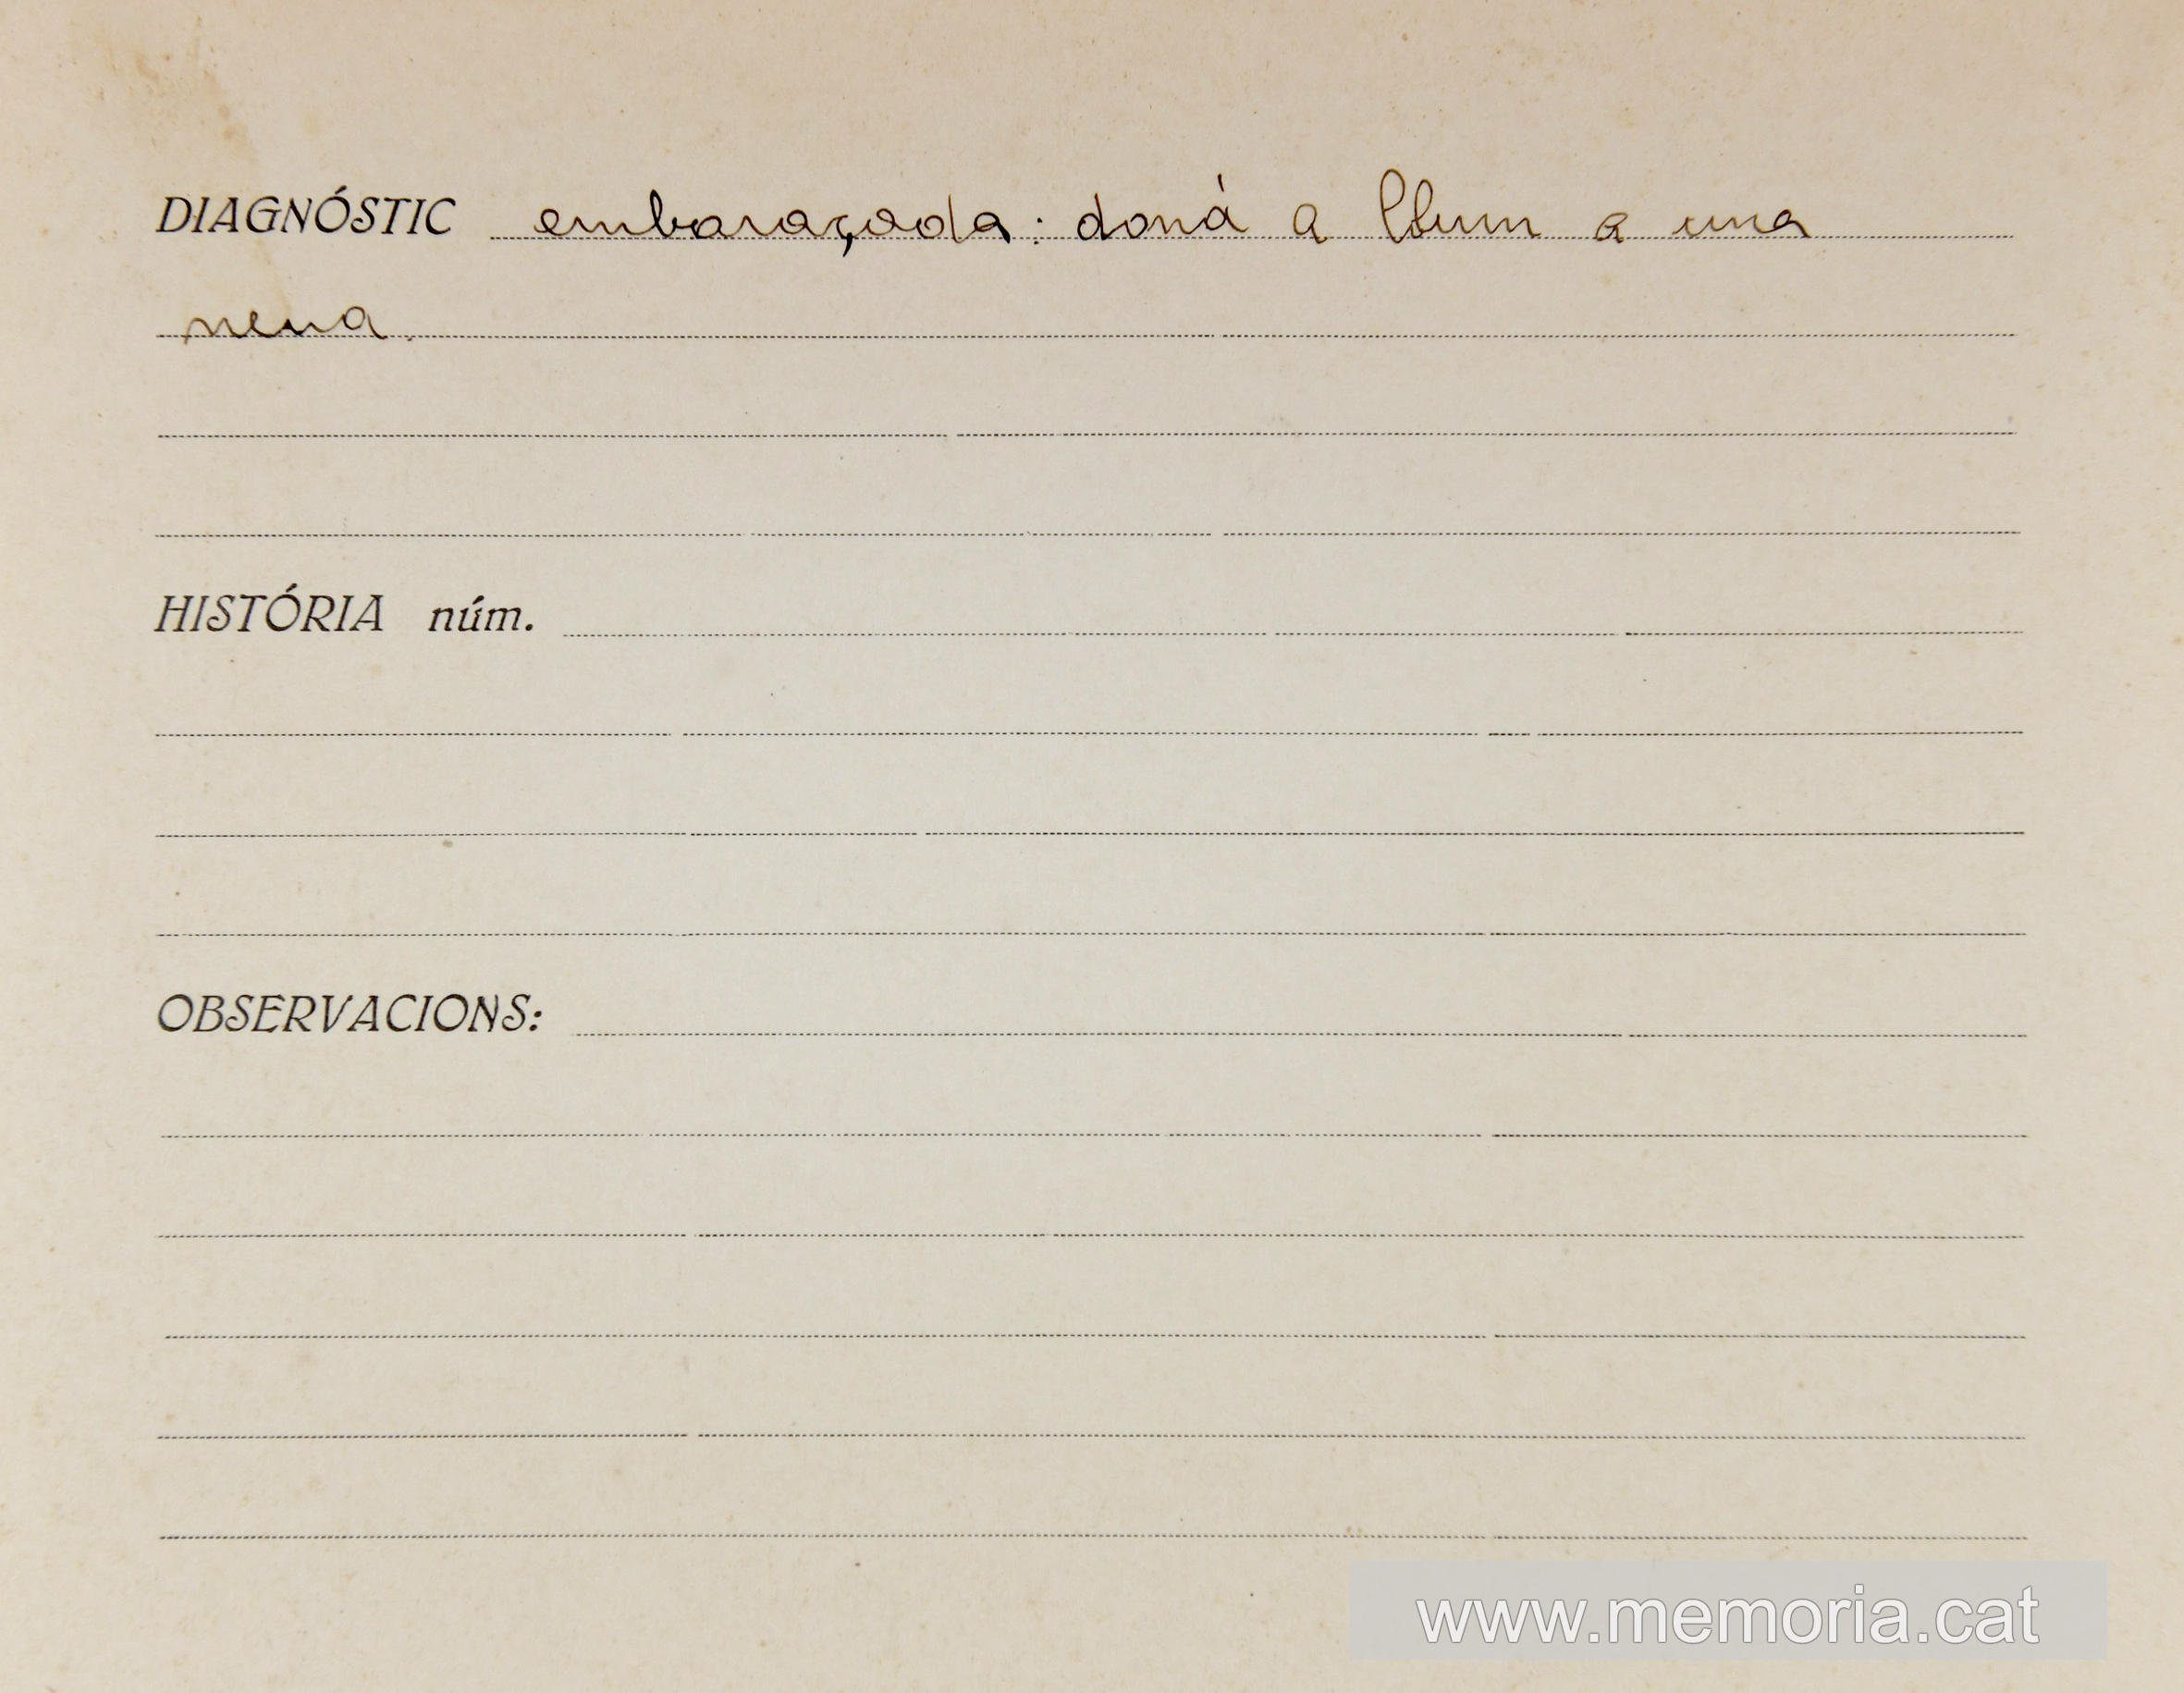 DIAGNÓSTIC embaraçada: doná a llum a una
nena.
HISTÓRIA núm.
OBSERVACIONS:
www.memoria.cat